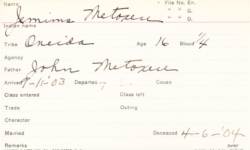 Name Jemima Metoxen File No. En.
" " G.
Indian Name " " D.
Tribe Oneida Age 16 Blood 1/4
Agency
Father John Metoxen
9-11-'03 Departed Cause
Class entered Class left
Trade Outing
Character
Married Deceased 4-6-'04
Remarks